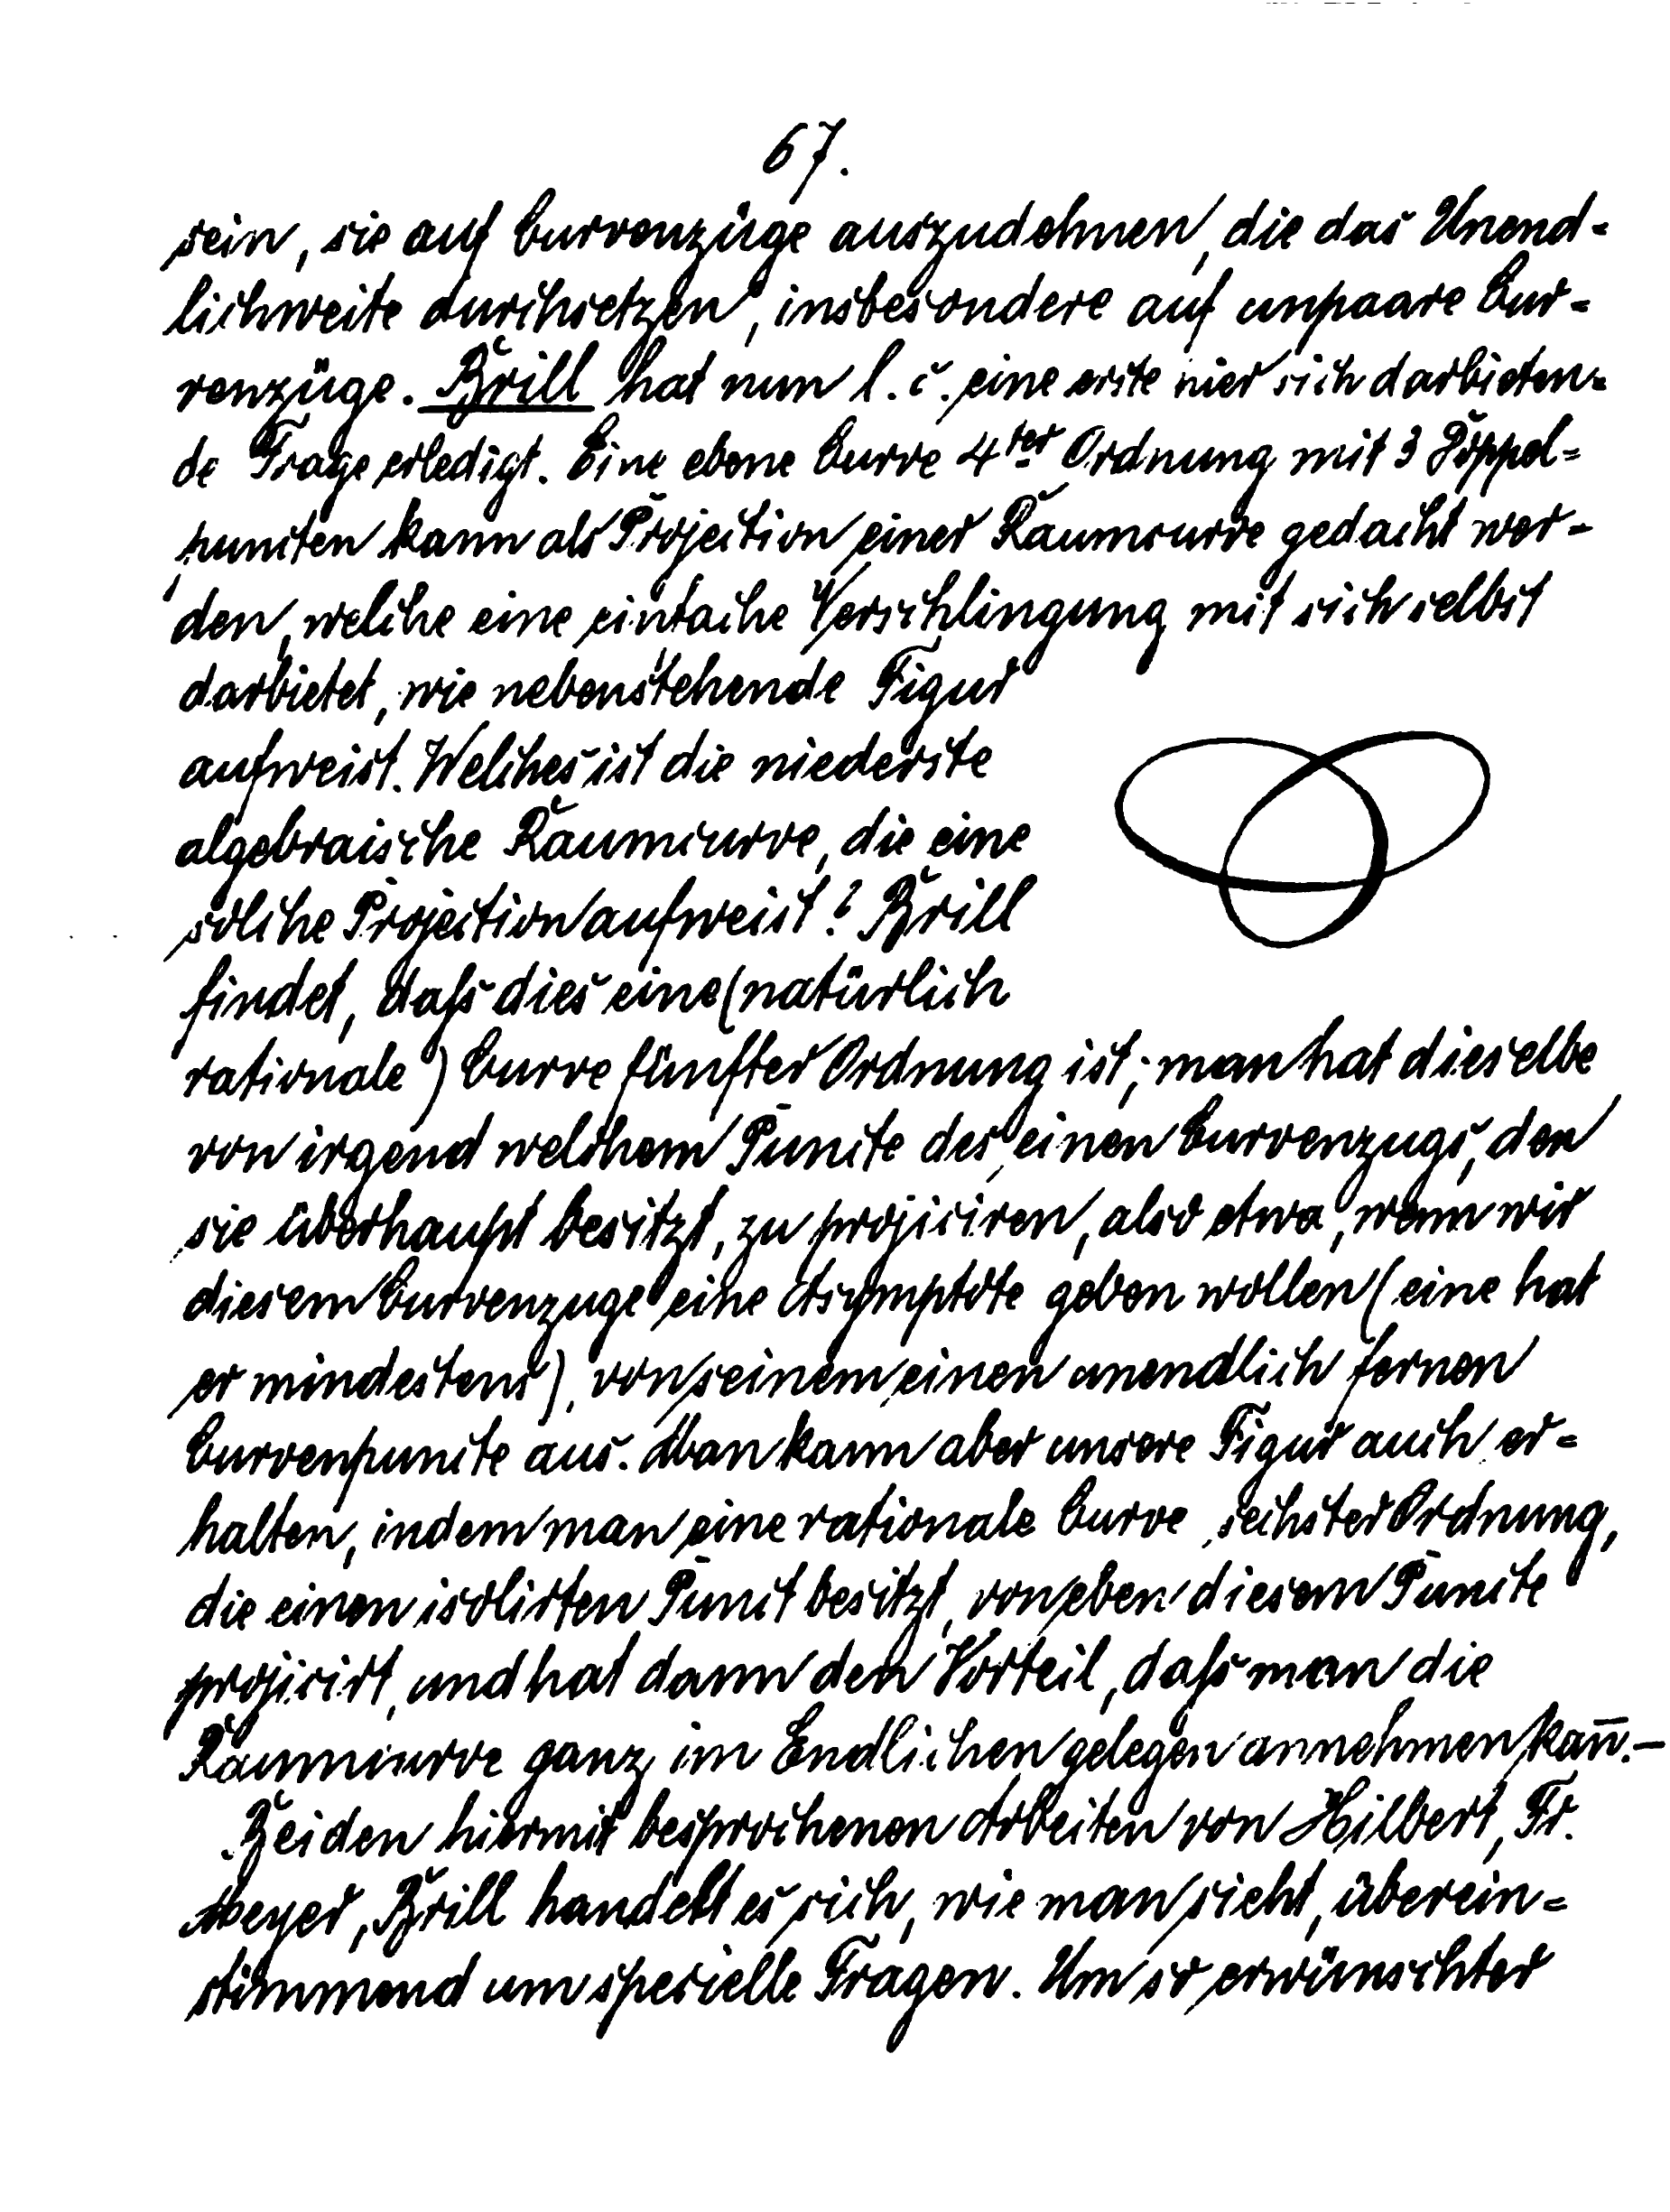 67.
sein, sie auf Curvenzüge auszudehnen, die das Unend-
lichweite durchsetzen, insbesondere auf unpaare Cur-
venzüge. Brill hat nun l. c. eine erste hier sich darbieten-
de Frage erledigt. Eine ebene Curve 4ter Ordnung mit 3 Doppel-
puncten kann als Projection einer Raumcurve gedacht wer-
den, welche eine einfache Verschlingung mit sich selbst
darbietet, wie nebenstehende Figur
aufweist. Welches ist die niederste
algebraische Raumcurve, die eine
solche Projection aufweist? Brill
findet, daſs dies eine (natürlich
rationale) Curve fünfter Ordnung ist; man hat dieselbe
von irgend welchem Puncte des einen Curvenzugs, den
sie überhaupt besitzt, zu projiciren, also etwa, wenn wir
diesem Curvenzuge eine Asymptote geben wollen (eine hat
er mindestens), von seinem einen unendlich fernen
Curvenpuncte aus. Man kann aber unsere Figur auch er-
halten, indem man eine rationale Curve sechster Ordnung,
die einen isolirten Punct besitzt, von eben diesem Puncte
projicirt, und hat dann den Vorteil, daſs man die
Raumcurve ganz im Endlichen gelegen annehmen kan̄.—
Bei den hiermit besprochenen Arbeiten von Hilbert, Fr.
Meyer, Brill handelt es sich, wie man sieht, überein-
stimmend um specielle Fragen. Um so erwünschter